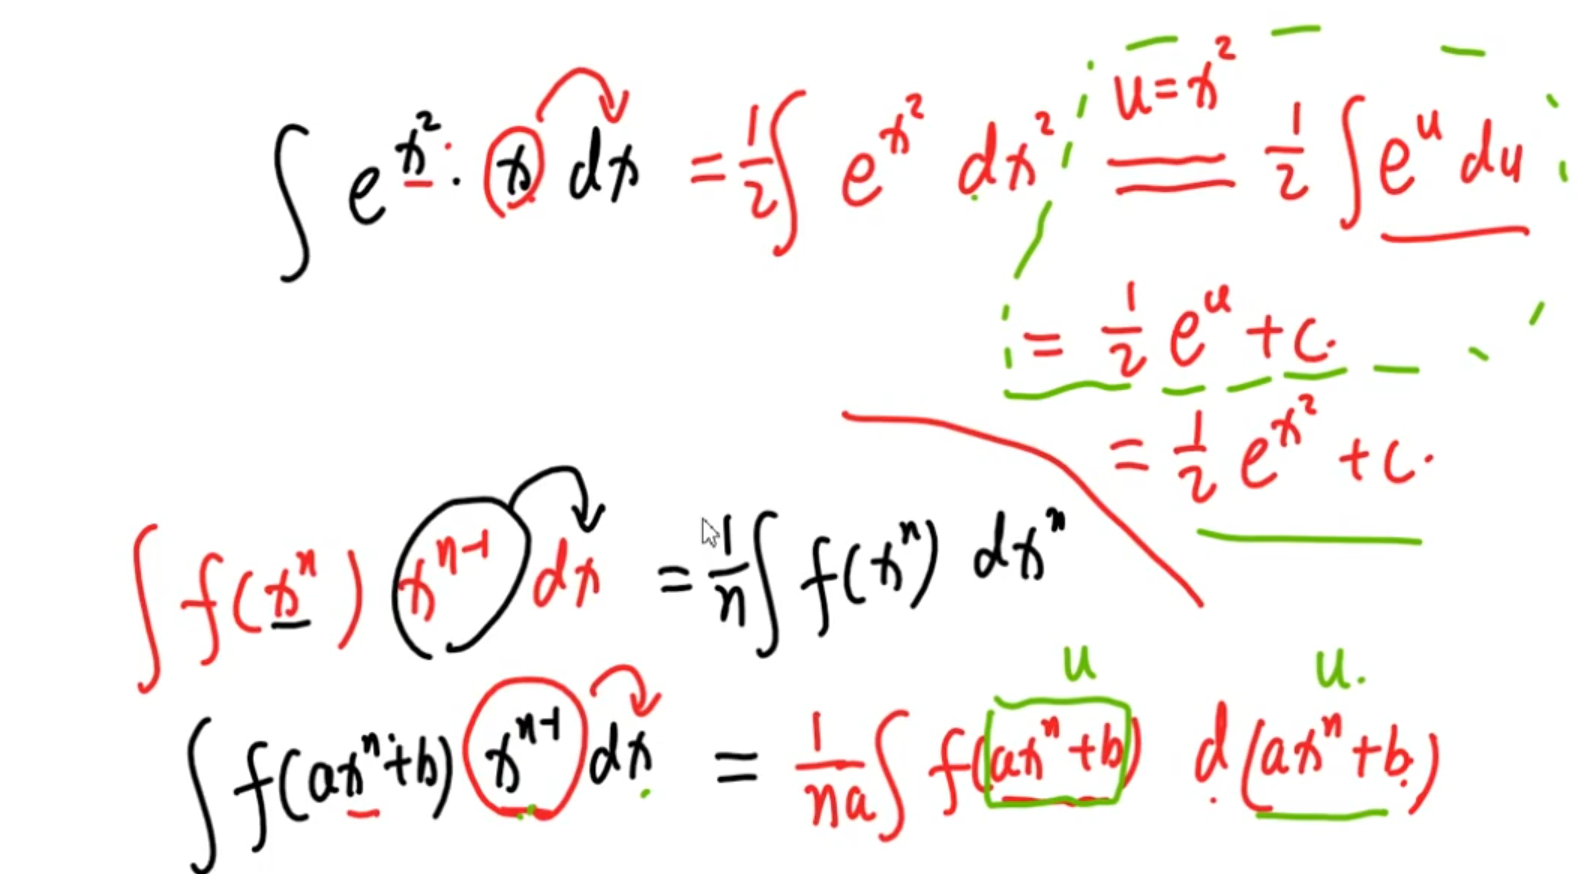 ∫ e^{x²} · x dx = 1/2 ∫ e^{x²} dx² \overset{u=x²}{=} 1/2 ∫ e^u du
= 1/2 e^u + c.
= 1/2 e^{x²} + c.
∫ f(x^n) x^{n-1} dx = 1/n ∫ f(x^n) dx^n
u u.
∫ f(ax^n+b) x^{n-1} dx = 1/na ∫ f(ax^n+b) d(ax^n+b)